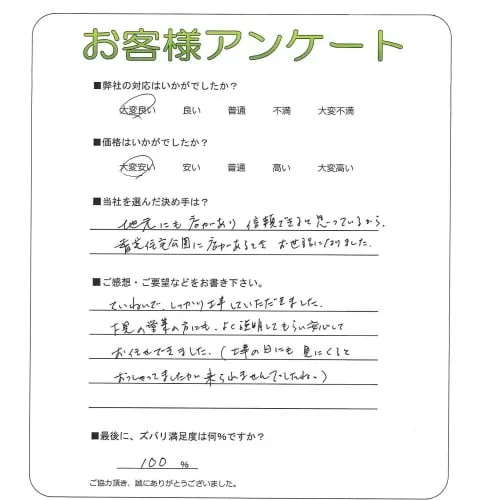 お客様アンケート
■弊社の対応はいかがでしたか？
大変良い 良い 普通 不満 大変不満
■価格はいかがでしたか？
大変安い 安い 普通 高い 大変高い
■当社を選んだ決め手は？
地元にも店があり 信頼できると思っているから、
住宅公園に店があるときも お世話になりました。
■ご感想・ご要望などをお書き下さい。
ていねいで、しっかり工事していただきました。
下見の営業の方にも、よく説明してもらい安心して
お任せできました。（工事の日にも見にくると
おっしゃってましたが来られませんでしたね。）
■最後に、ズバリ満足度は何％ですか？
100 %
ご協力頂き、誠にありがとうございました。